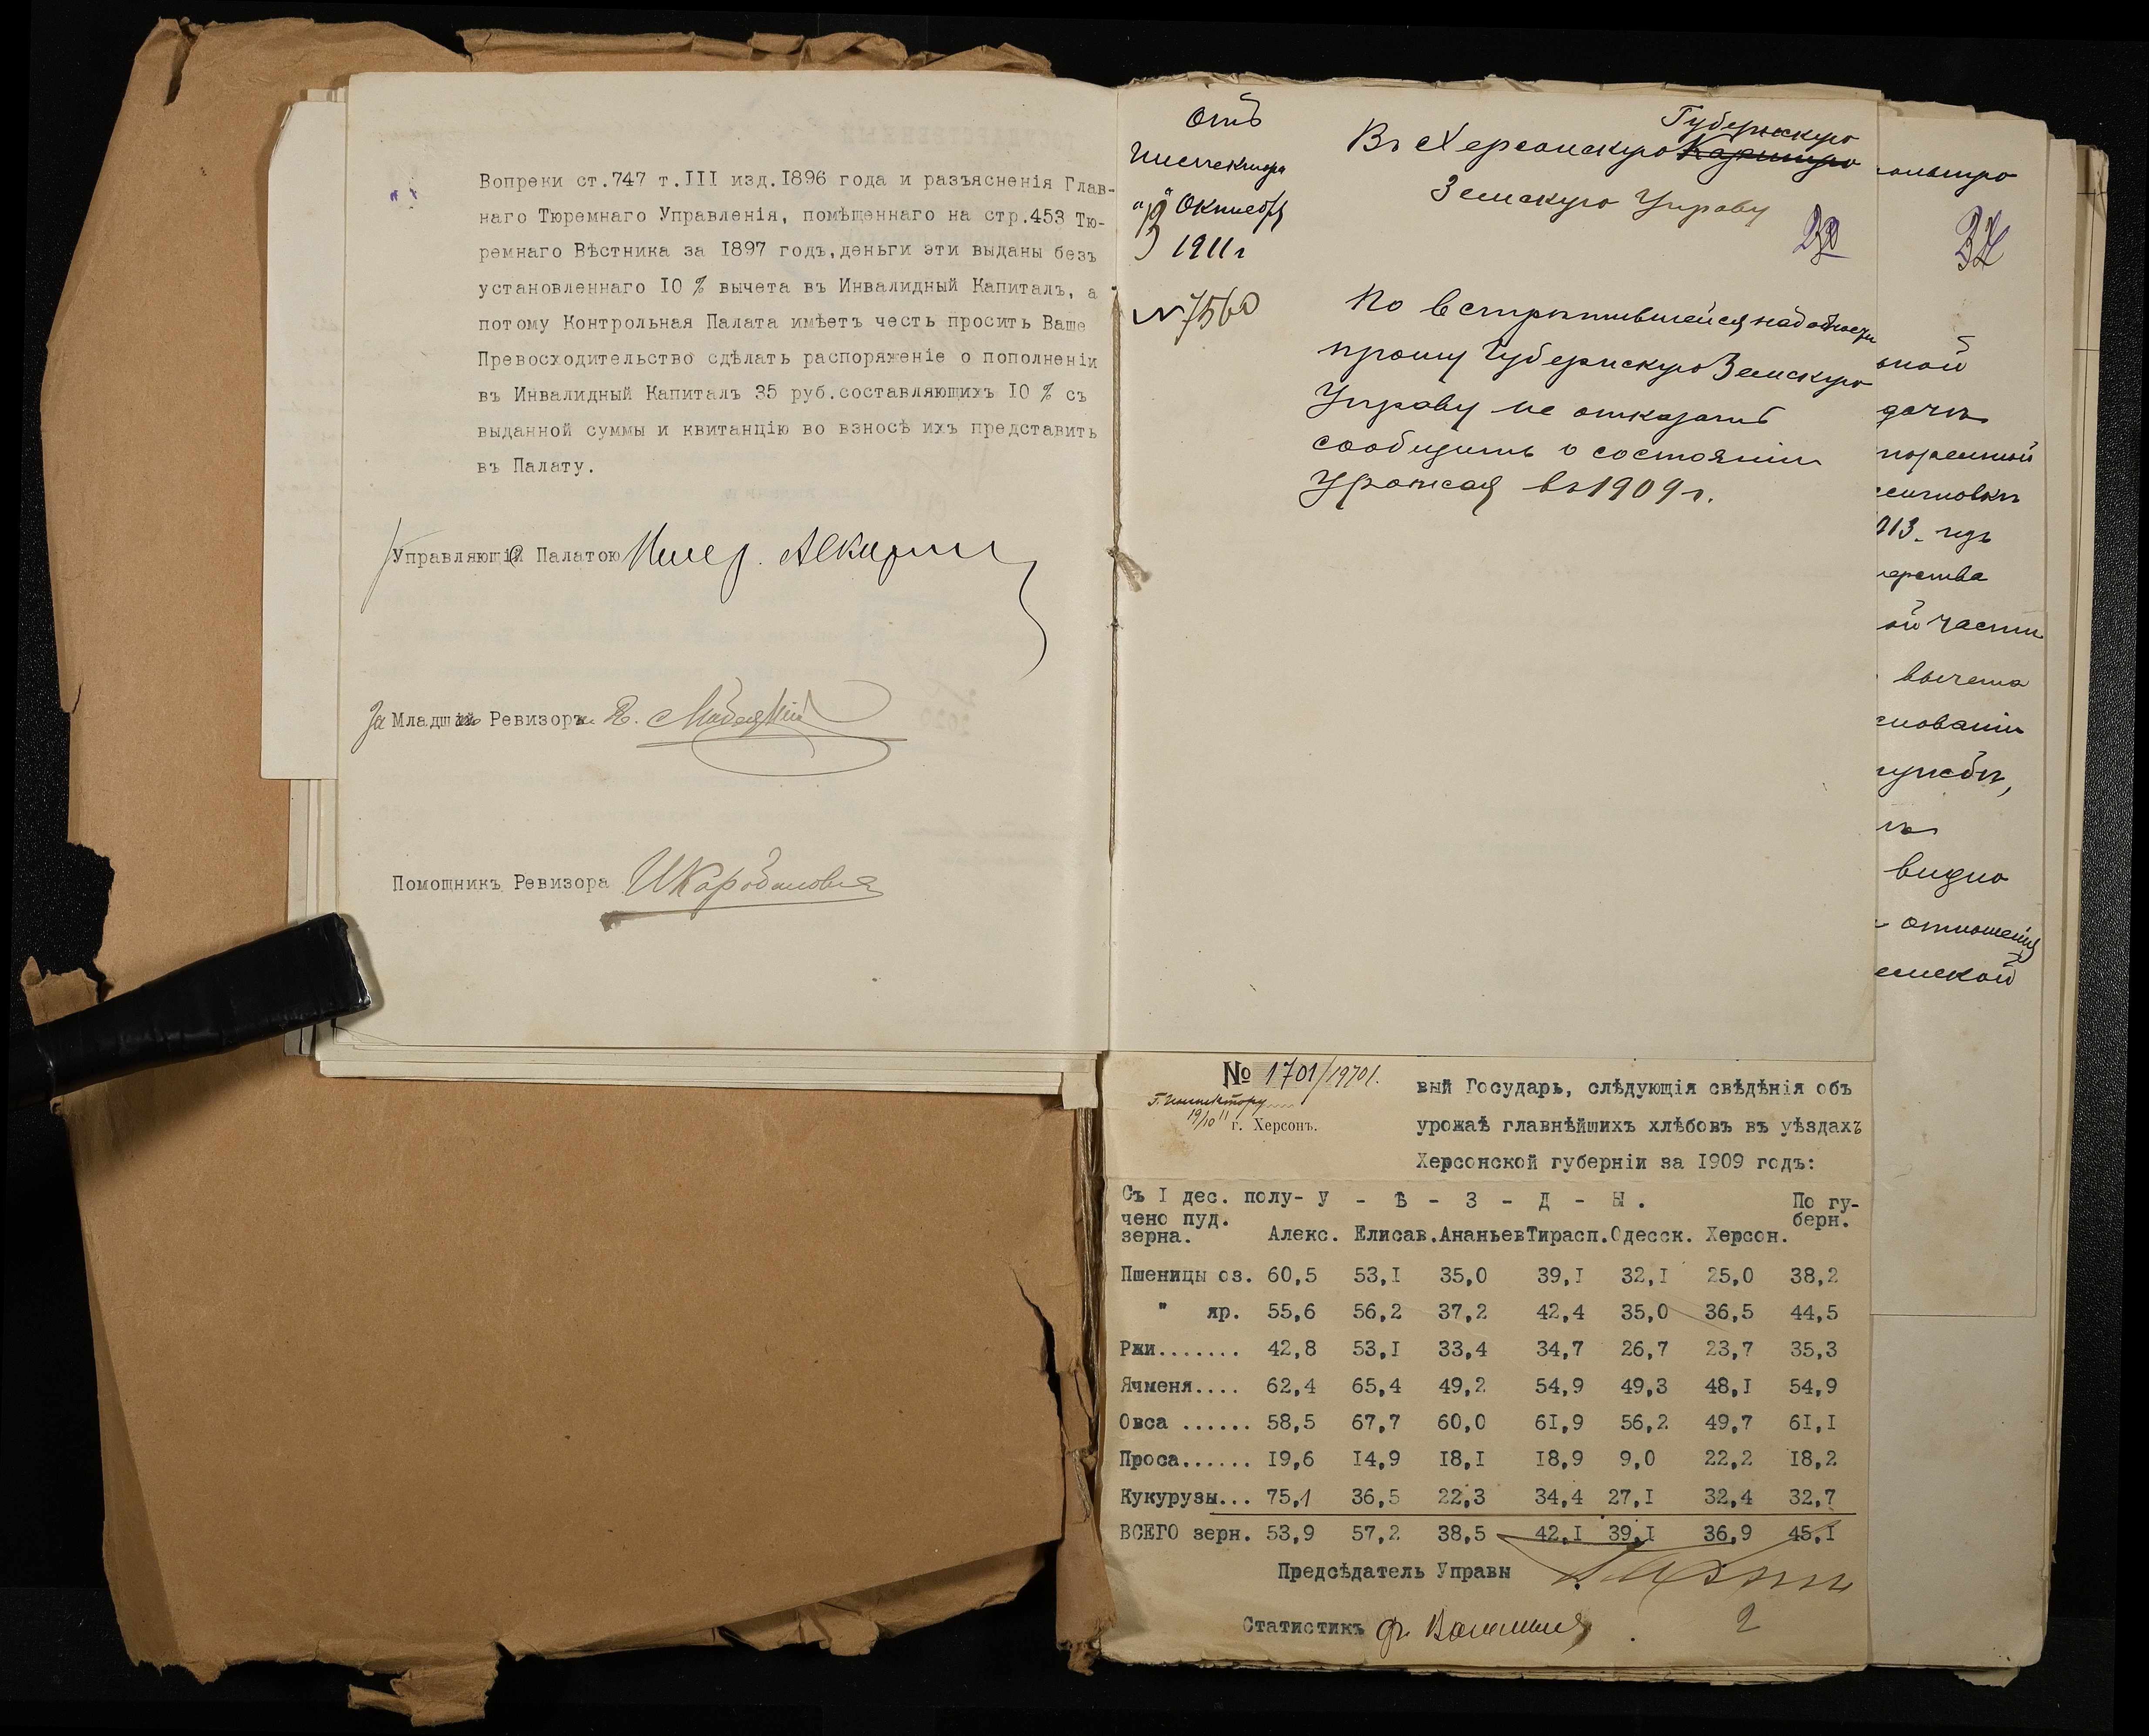 Вопреки ст.747 т.III изд.I896 года и разъясненія Глав-
наго Тюремнаго Управленія, помѣщеннаго на стр.453 Тю-
ремнаго Вѣстника за I897 годъ,деньги эти выданы безъ
установленнаго I0 % вычета въ Инвалидный Капиталъ, а
потому Контрольная Палата имѣетъ честь просить Ваше
Превосходительство сдѣлать распоряженіе о пополненіи
въ Инвалидный Капиталъ 35 руб.составляющихъ I0 % съ
выданной суммы и квитанцію во взносѣ ихъ представить
въ Палату.
Управляющій Палатою
За Младшій Ревизоръ
Помощникъ Ревизора
Отъ
Инспектора
Октября
1911 г
№ 7560
Губернскую
Въ Херсонскую
Земскую Управу
По встрѣтившейся надобности
прошу Губернскую Земскую
Управу не отказать
сообщить о состояніи
Урожая въ 1909 г.
№ 1701/19701.
Г. Инспектору
19/10 11 г. Херсонъ.
вый Государь, слѣдующія свѣдѣнія объ
урожаѣ главнѣйшихъ хлѣбовъ въ уѣздахъ
Херсонской губерніи за I909 годъ:
Съ I дес. полу- У - Ѣ - З - Д - Ы . По гу-
чено пуд. берн.
зерна. Алекс. Елисав.АнаньевТирасп.Одесск. Херсон.
Пшеницы оз. 60,5 53,I 35,0 39,I 32,I 25,0 38,2
" яр. 55,6 56,2 37,2 42,4 35,0 36,5 44,5
Ржи....... 42,8 53,I 33,4 34,7 26,7 23,7 35,3
Ячменя.... 62,4 65,4 49,2 54,9 49,3 48,I 54,9
Овса ...... 58,5 67,7 60,0 6I,9 56,2 49,7 6I,I
Проса...... I9,6 I4,9 I8,I I8,9 9,0 22,2 I8,2
Кукурузы... 75,1 36,5 22,3 34,4 27,I 32,4 32,7
ВСЕГО зерн. 53,9 57,2 38,5 42,I 39,I 36,9 45,I
Предсѣдатель Управы
Статистикъ
2
ьной
дачѣ
913. годъ
ой части
вычета
снованіи
службы,
видно
отношенія
емской